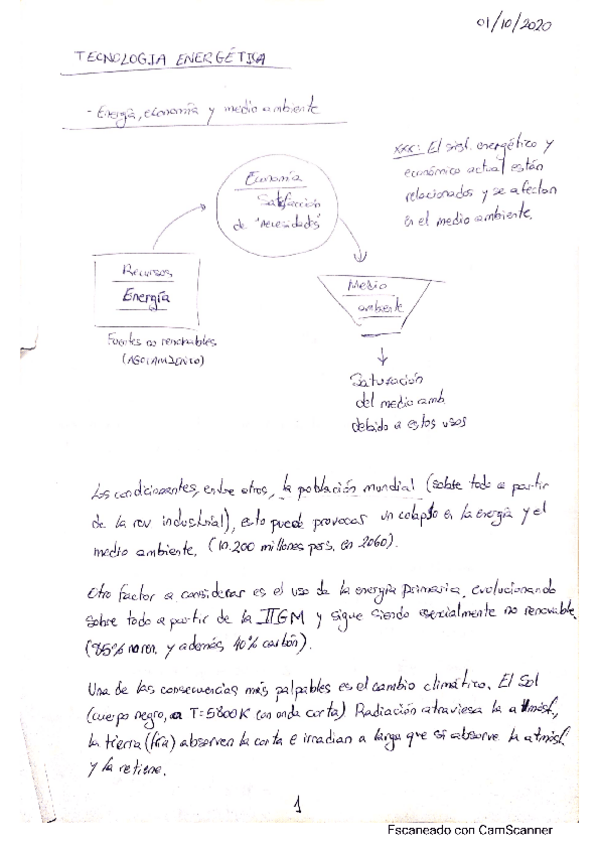 01/10/2020
TECNOLOGIA ENERGÉTICA
- Energía, economía y medio ambiente
xxx: El sist. energético y
económico actual están
relacionados y se afectan
en el medio ambiente.
Economía
Satisfacción
de "necesidades"
Recursos
Energía
Fuentes no renovables
(AGOTAMIENTO)
Medio
ambiente
Saturación
del medio amb.
debido a estos usos
Los condicionantes, entre otros, la población mundial (sobre todo a partir
de la rev industrial), esto puede provocar un colapso en la energía y el
medio ambiente. (10.200 millones pers. en 2060).
Otro factor a considerar es el uso de la energía primaria, evolucionando
sobre todo a partir de la IIGM y sigue siendo esencialmente no renovable
(85% no ren. y además 40% carbón).
Una de las consecuencias más palpables es el cambio climático. El Sol
(cuerpo negro, T=5800K con onda corta) Radiación atraviesa la atmósf.,
la tierra (fría) absorven la corta e irradian a larga que si absorve la atmósf.
y la retiene.
1
Escaneado con CamScanner